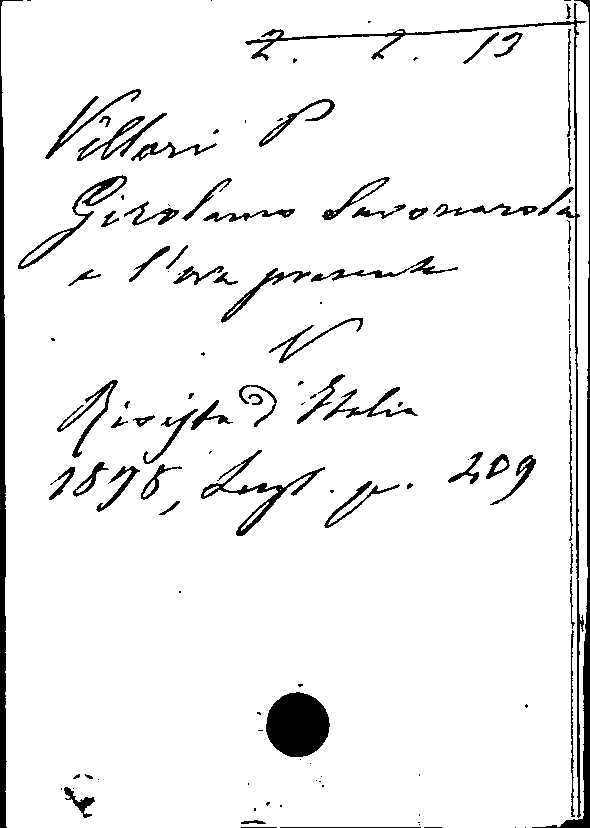 2. 2. 13
Villari P
Girolamo Savonarola
e l'ora presente
V
Rivista d'Italia
1898, Lugl. p. 209